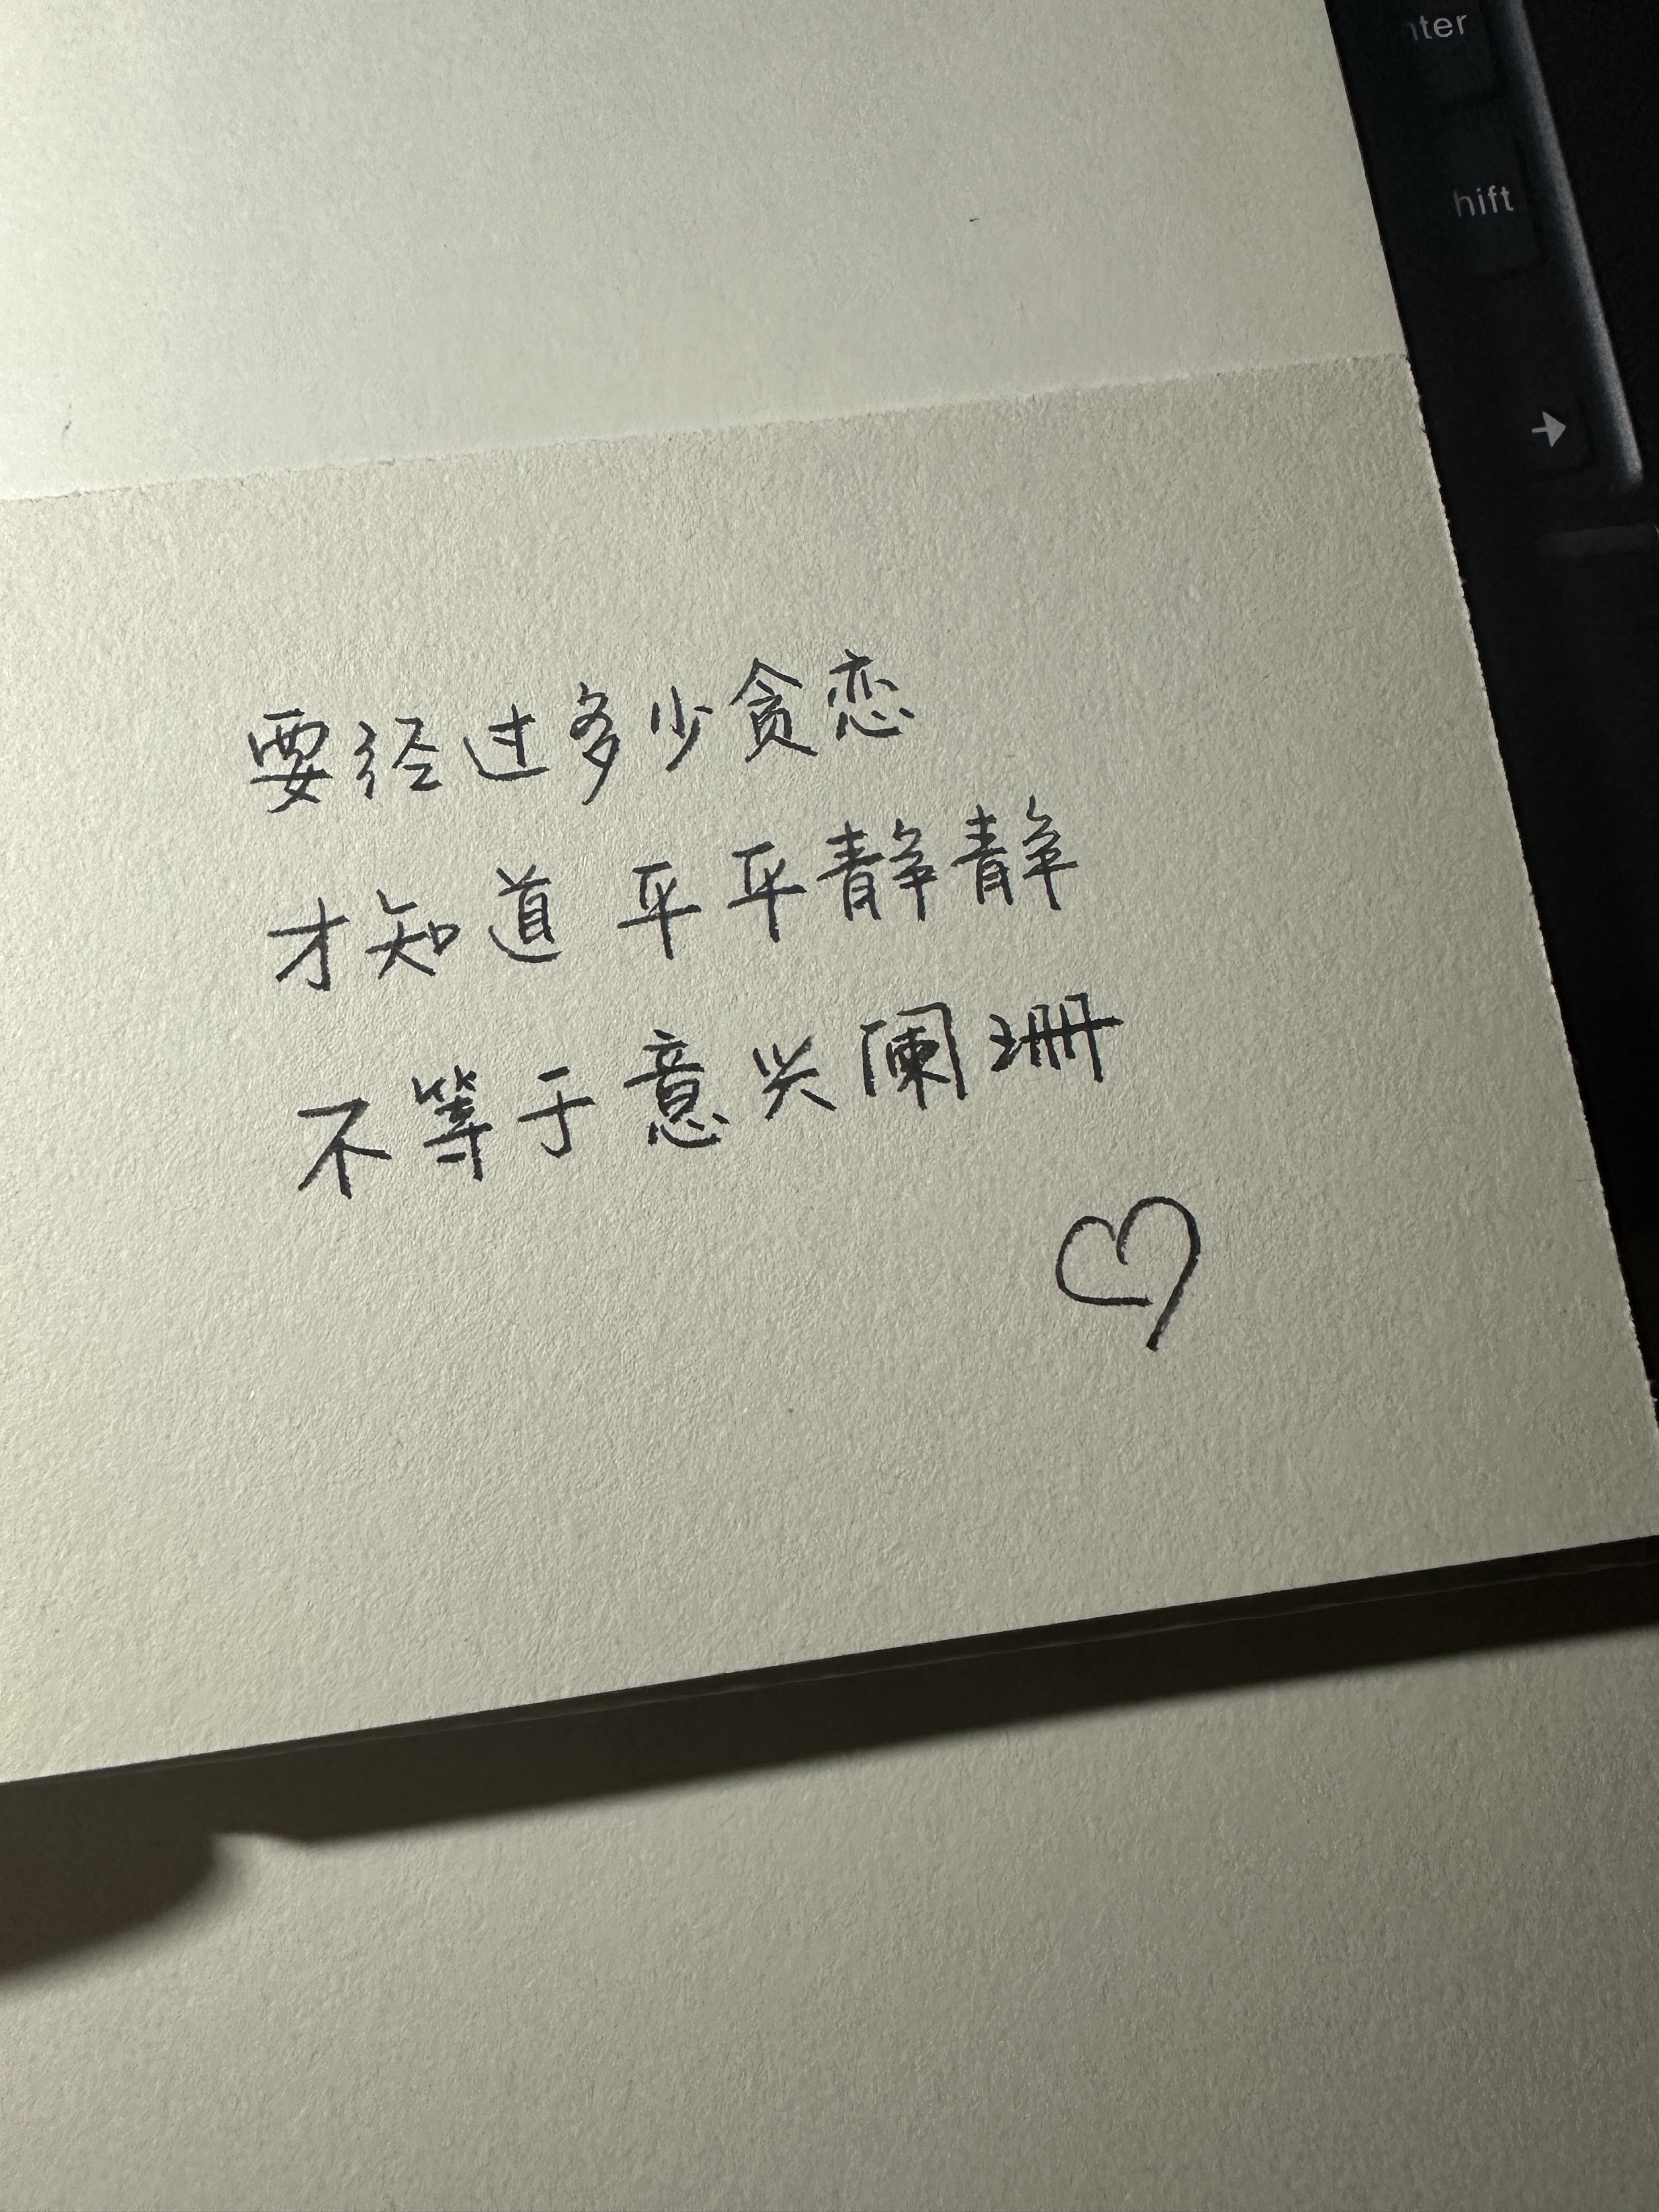 nter
hift
→
要经过多少贪恋
才知道 平平静静
不等于意兴阑珊